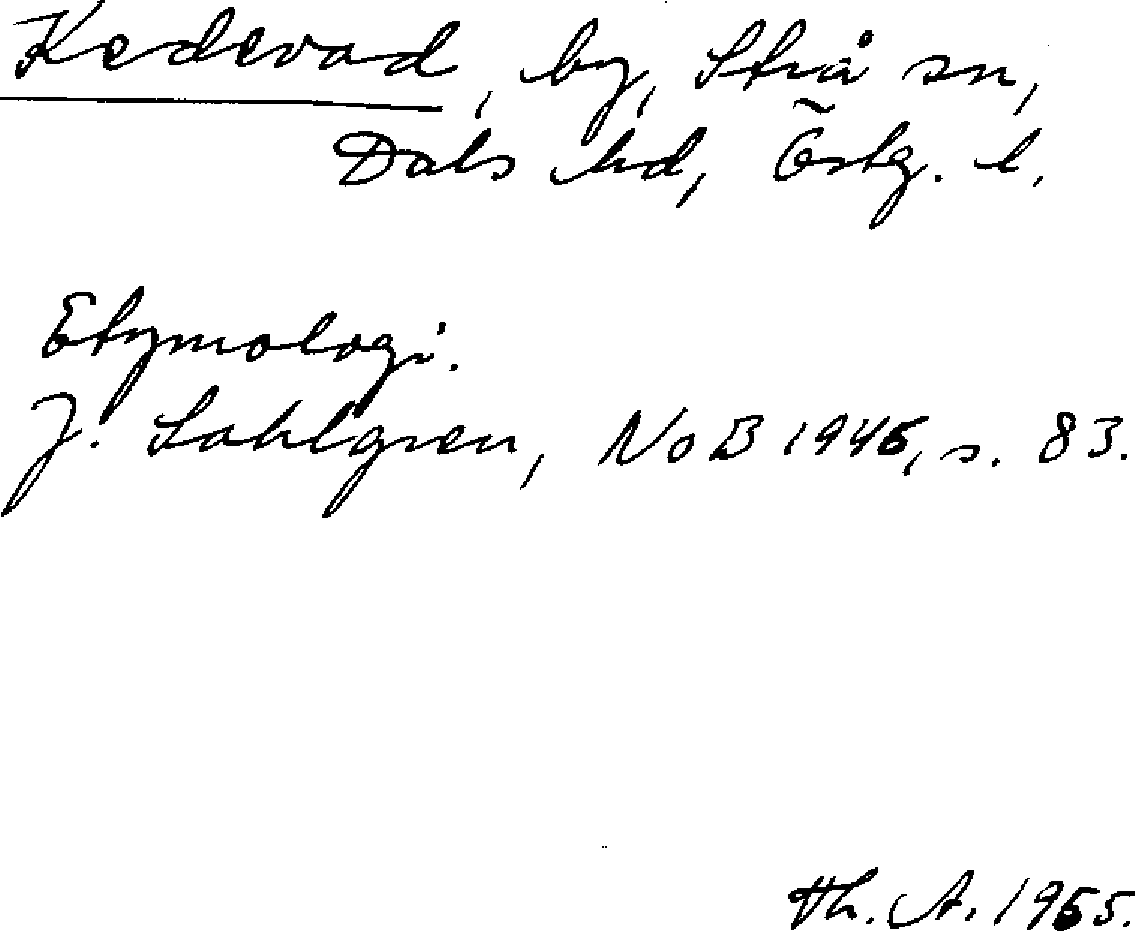 Kedevad, by, Strå sn,
Dals hd, Östg. l.
Etymologi.
J. Sahlgren, NoB 1945, s. 83.
Th. A. 1955.